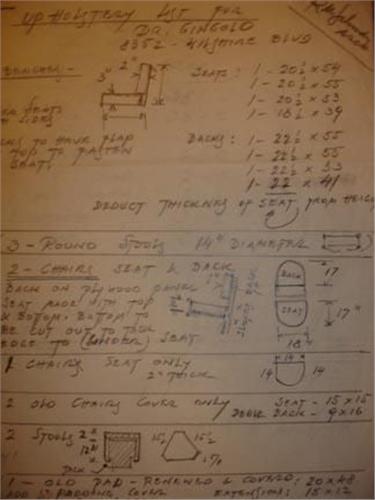 UPHOLSTERY LIST FOR
DR. GINGOLD
8352 - WILSHIRE BLVD
BENCHES - 2" SEATS: 1 - 20½ x 54
3" 1 - 20½ x 55
1 - 20½ x 53
SEATS 1 - 18½ x 39
SIDES
TO HAVE FLAP BACKS: 1 - 22½ x 55
TOP TO FASTEN 1 - 22½ x 55
SEATS 1 - 22½ x 53
1 - 22 x 41
DEDUCT THICKNESS OF SEAT FROM HEIGHT
3 - ROUND STOOLS 14" DIAMETER
2 - CHAIRS SEAT & BACK
BACK ON PLYWOOD PANEL BACK 17
SEAT MADE WITH TOP
& BOTTOM. BOTTOM TO SEAT 17"
BE CUT OUT TO TACK
EDGE TO SEAT 18"
1 CHAIRS SEAT ONLY 14"
2" THICK 14 14
2 OLD CHAIRS COVER ONLY SEAT - 15 x 15
BACK - 9 x 16
2 STOOLS 2 x 12 15½ 15½
TACK
1 - OLD PAD - RENEWED & COVERED: 20 x 48
ADD PADDING, COVER EXTENSION: 15 x 12